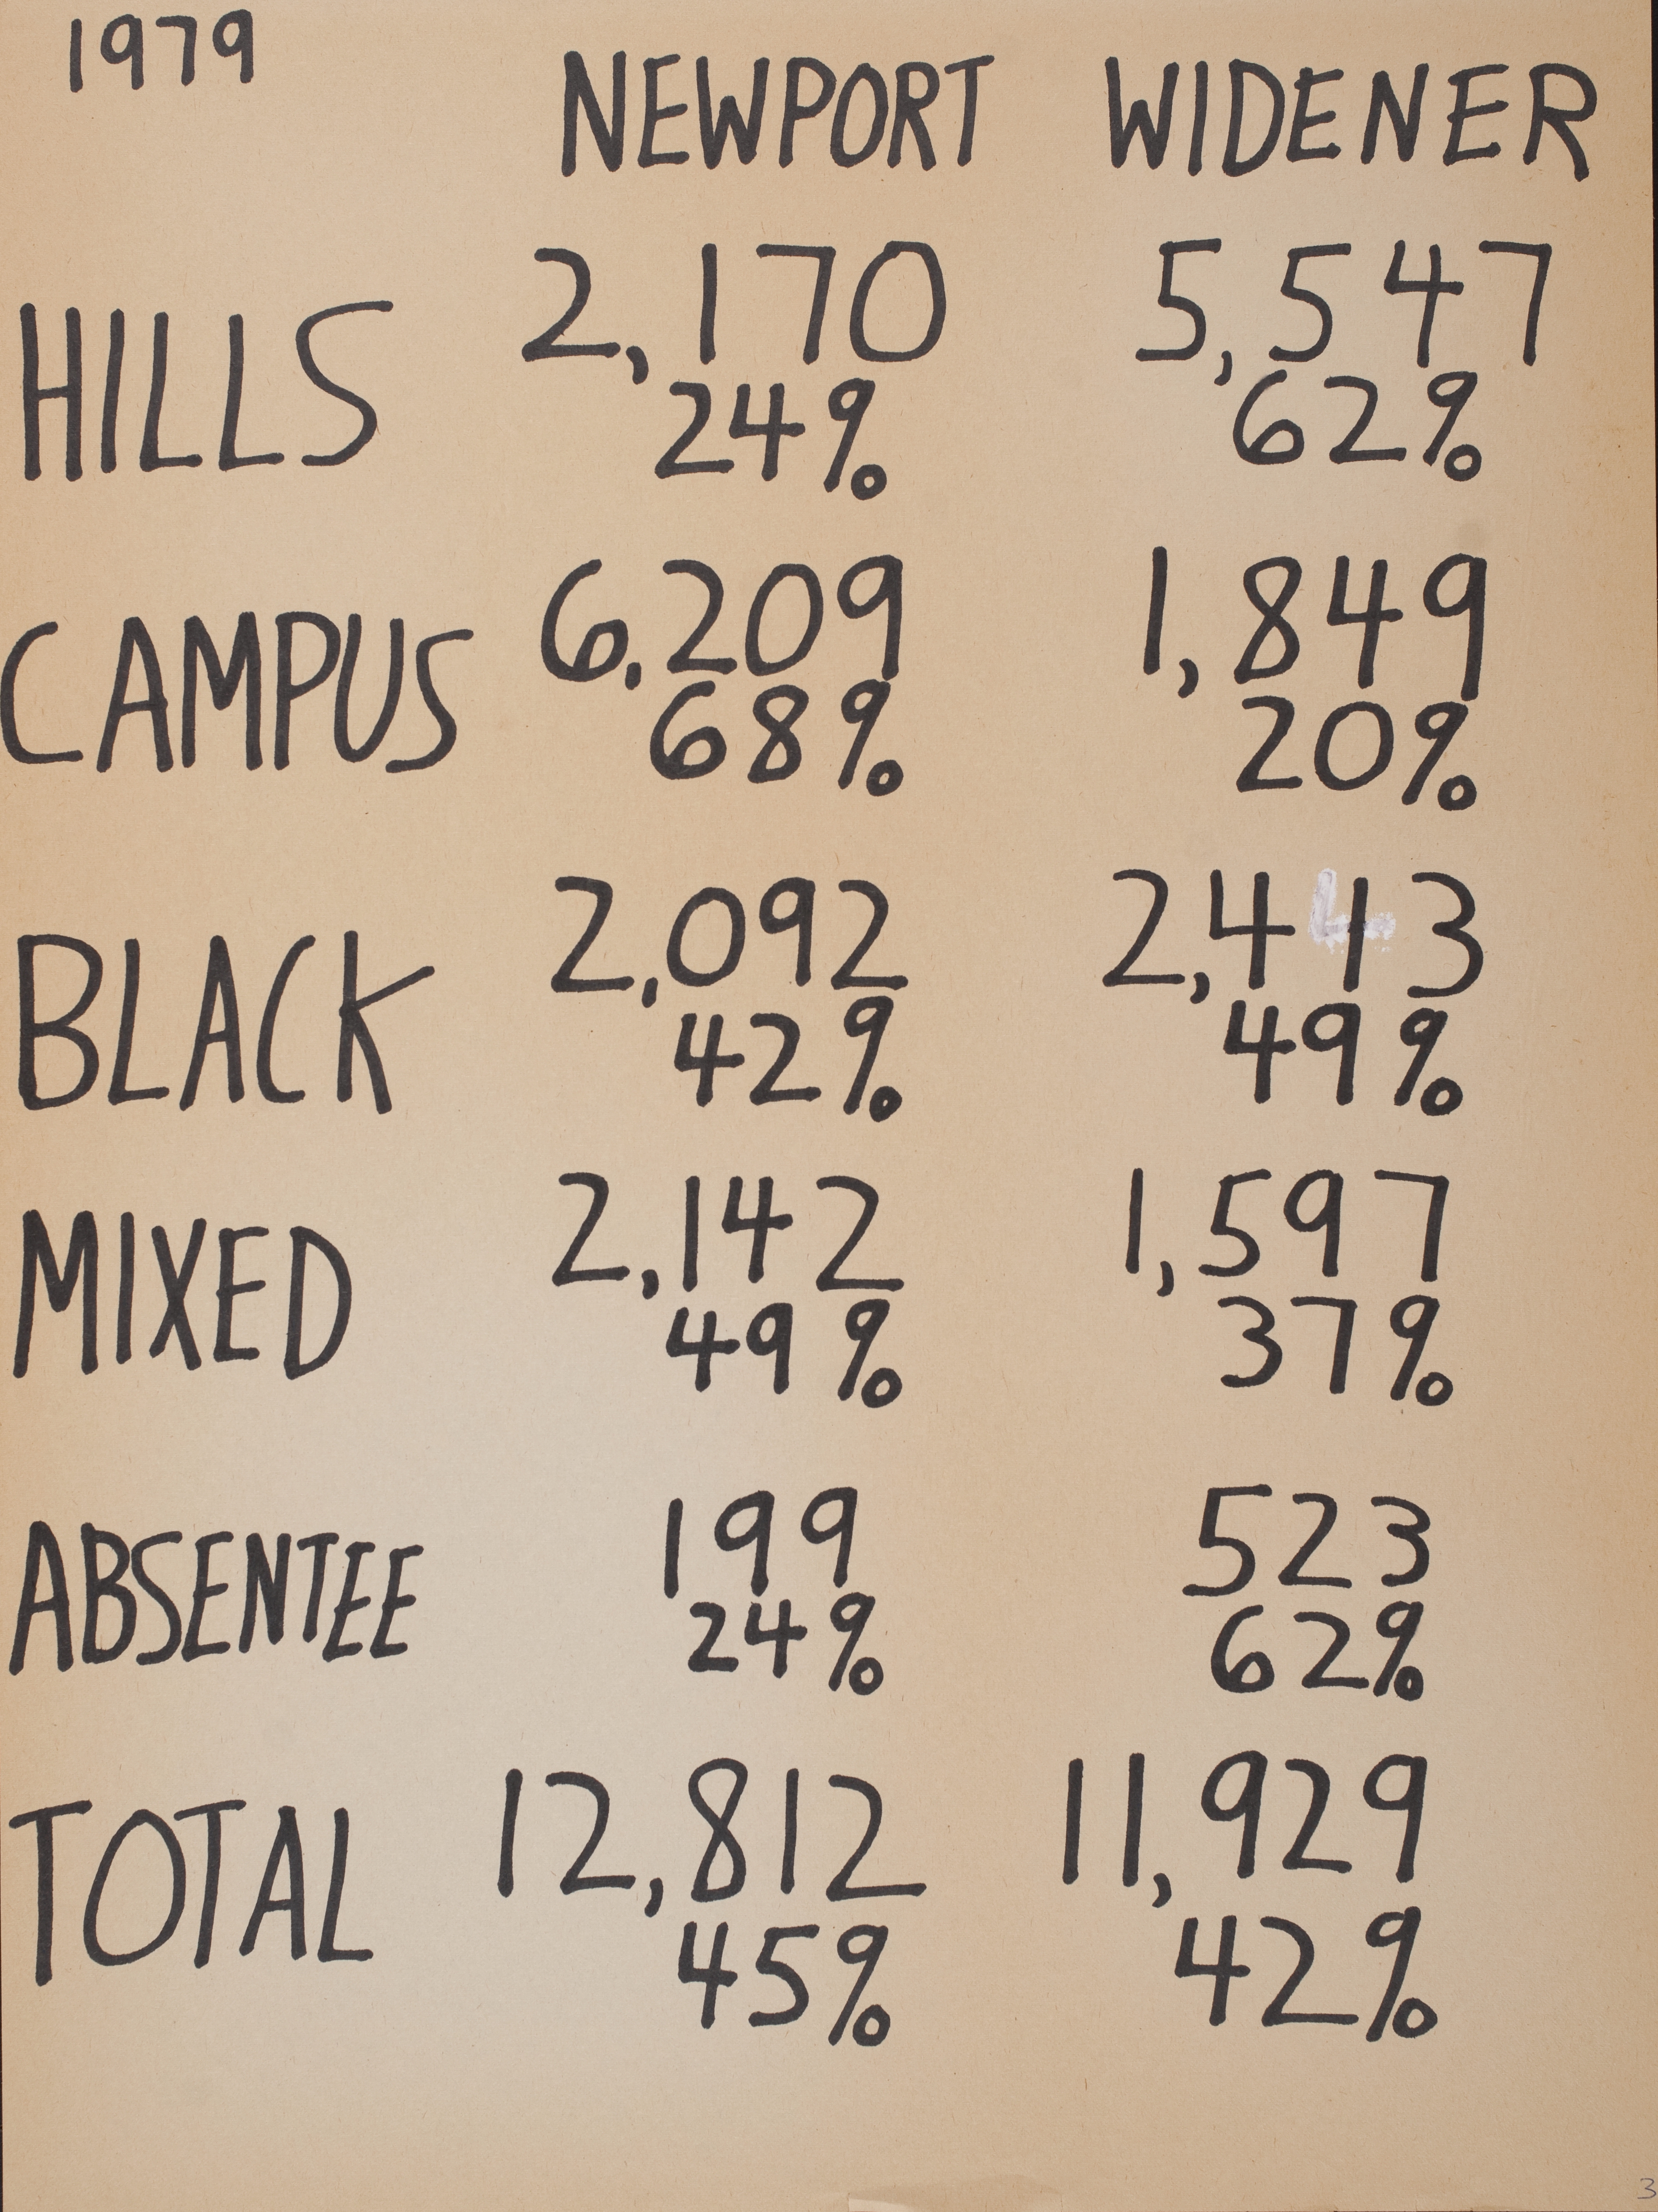 1979
NEWPORT WIDENER
HILLS 2,170 5,547
24% 62%
CAMPUS 6,209 1,849
68% 20%
BLACK 2,092 2,413
42% 49%
MIXED 2,142 1,597
49% 37%
ABSENTEE 199 523
24% 62%
TOTAL 12,812 11,929
45% 42%
3